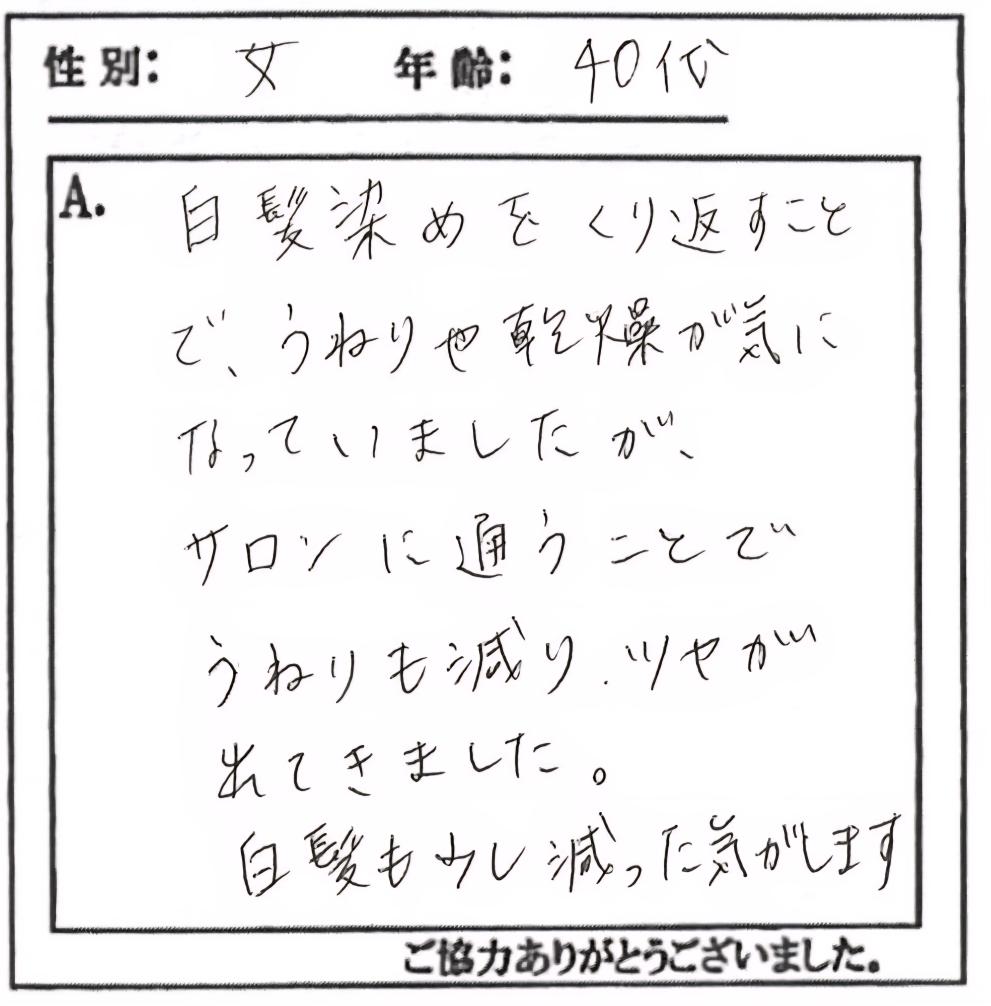 性別： 女 年齢： 40代
A. 白髪染めをくり返すこと
で、うねりや乾燥が気に
なっていましたが、
サロンに通うことで
うねりも減り、ツヤが
出てきました。
白髪も少し減った気がします
ご協力ありがとうございました。